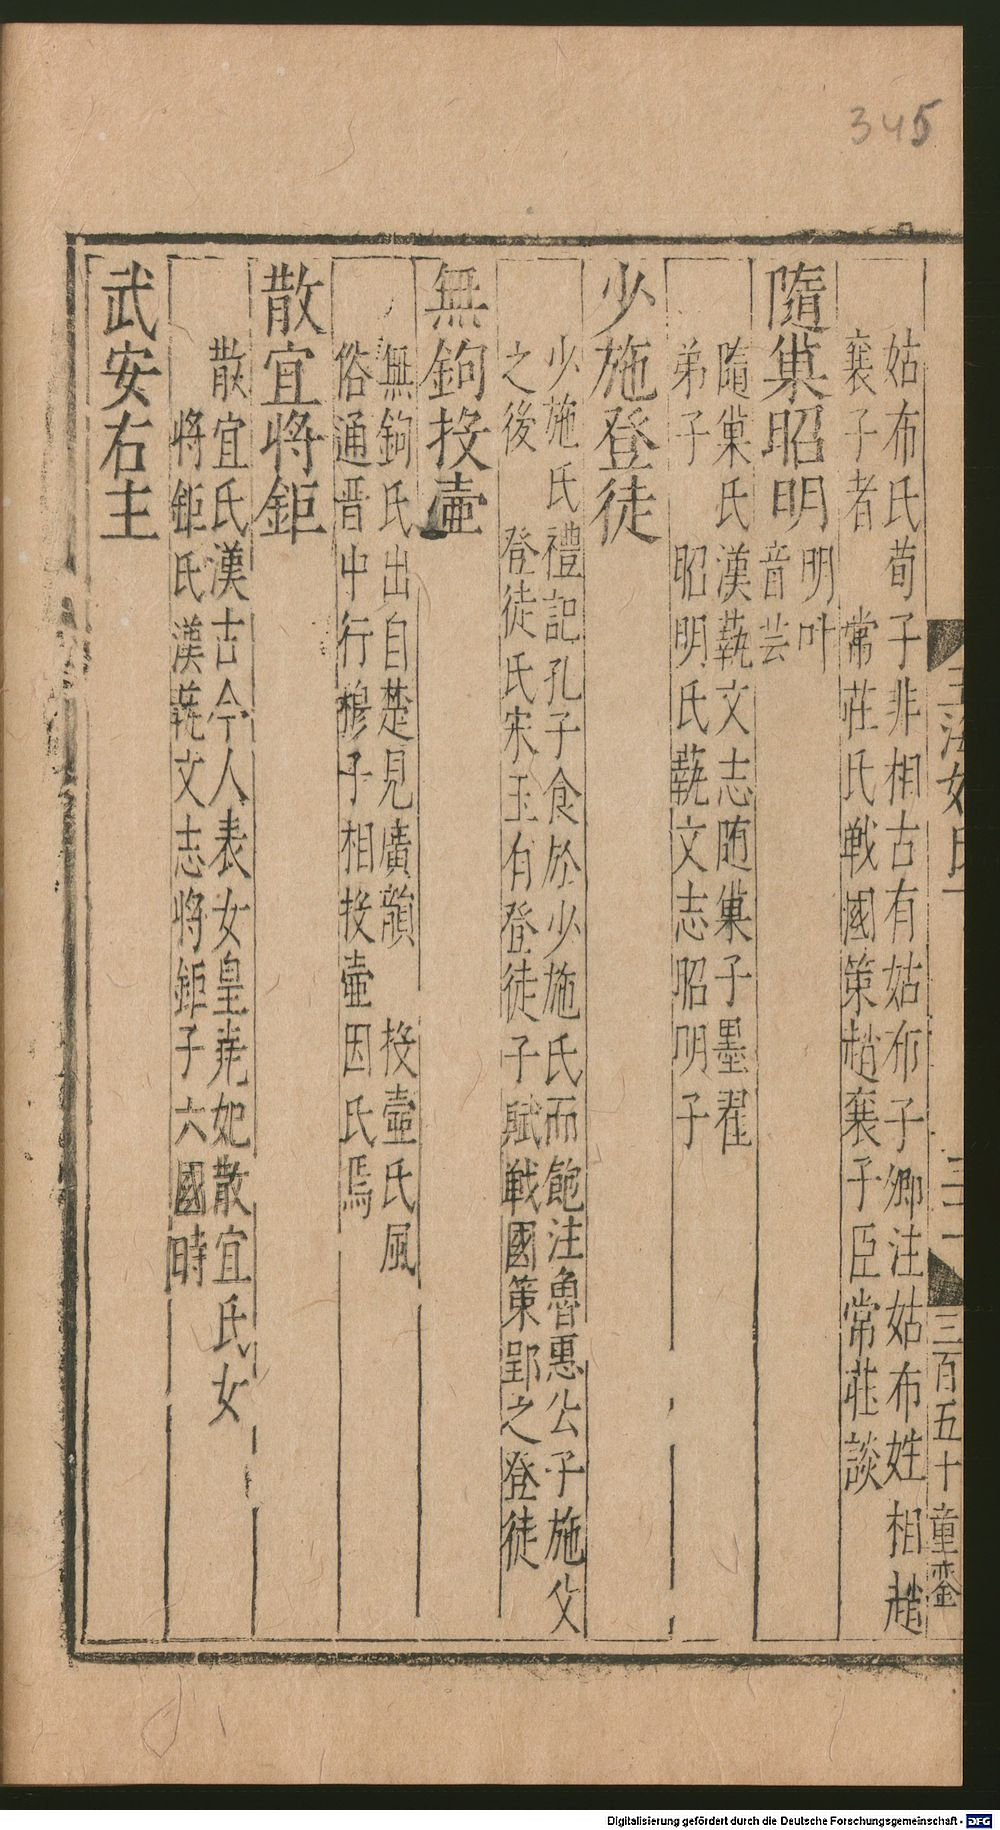 345
三百五十 童銮
姑布氏荀子非相古有姑布子卿注姑布姓相趙
襄子者 常莊氏戰國策趙襄子臣常莊談
隨巢昭明 明叶音芸
隨巢氏漢藝文志随巢子墨翟
弟子 昭明氏藝文志昭明子
少施登徒
少施氏禮記孔子食於少施氏而飽注魯惠公子施父
之後 登徒氏宋玉有登徒子賦戰國策郢之登徒
無鉤投壷
無鉤氏出自楚見廣韻 投壷氏風
俗通晋中行穆子相投壷因氏焉
散宜將鉅
散宜氏漢古今人表女皇堯妃散宜氏女
將鉅氏漢藝文志將鉅子六國時
武安右主
Digitalisierung gefördert durch die Deutsche Forschungsgemeinschaft - DFG